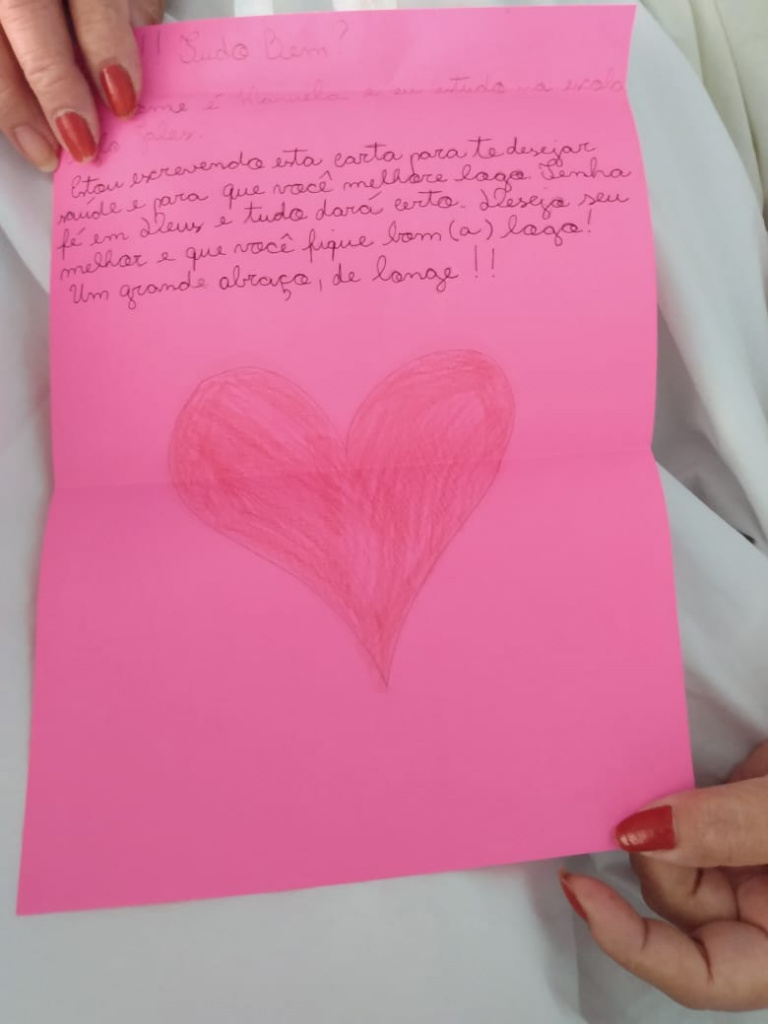 !! Tudo Bem?
nome é Manuela e eu estudo na escola
Sales.
Estou escrevendo esta carta para te desejar
saúde e para que você melhore logo. Tenha
fé em Deus, e tudo dará certo. Desejo seu
melhor e que você fique bom (a) logo!
Um grande abraço, de longe!!